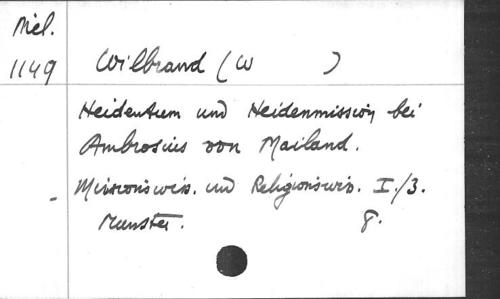 Miel.
1149
Wilbrand (W )
Heidentum und Heidenmission bei
Ambrosius von Mailand.
Missionswiss. und Religionswis. I./3.
Munster. 8.